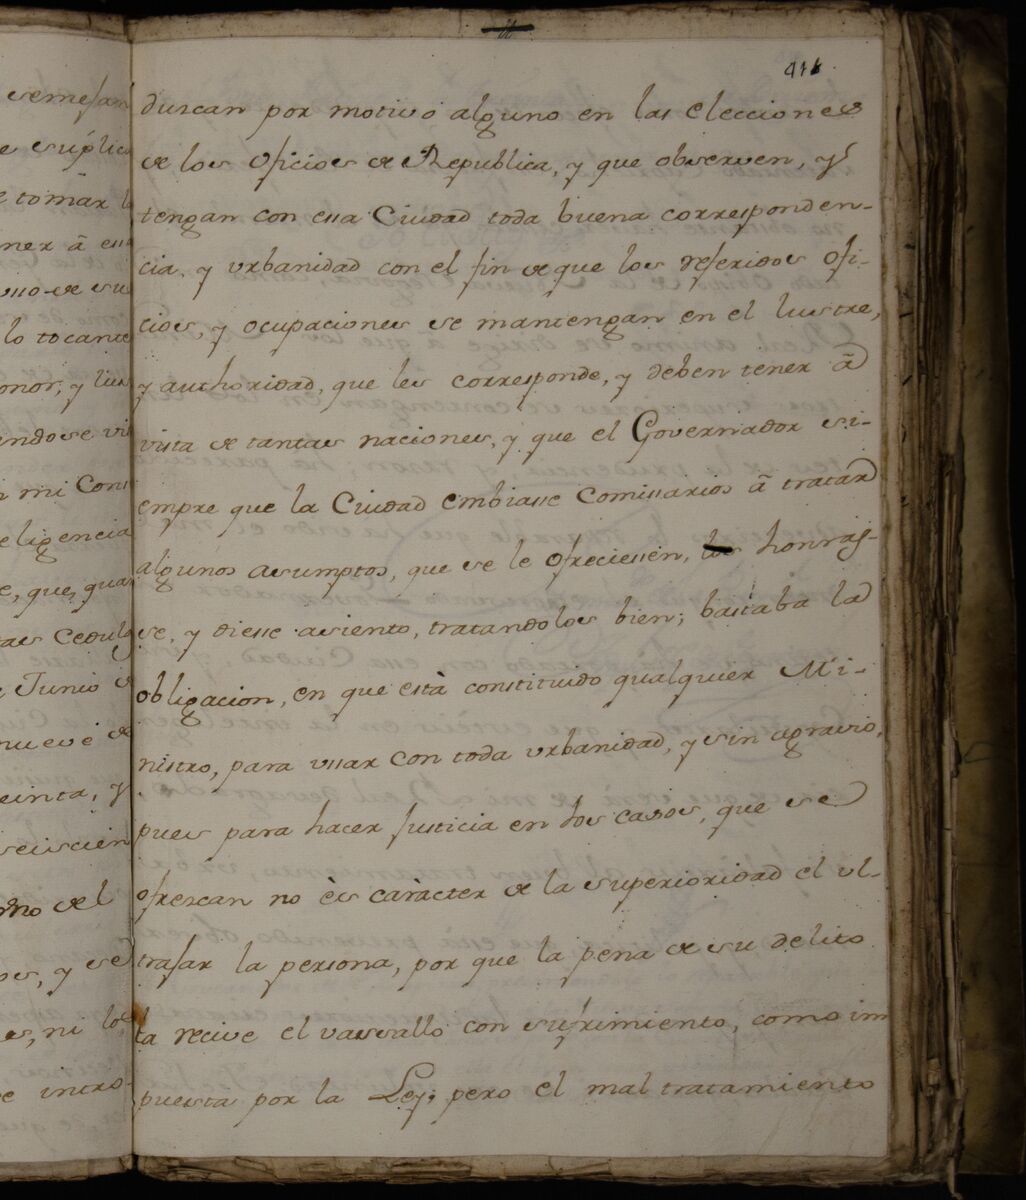 411
semejan
e suplica
e tomar l
ner â essa
usso de su
lo tocante
onor, y lus
andose vi
n mi Cons
eligencia
e, que, qua
tas Cedulas
e Junio d
nueve de
einta, y
seiscien
rno del
os, y se
es, ni los
e intro-
duscan por motivo alguno en las elecciones
de los oficios de Republica, y que observen, y
tengan con essa Ciudad toda buena corresponden-
cia, y urbanidad con el fin de que los referidos ofi-
cios, y ocupaciones se mantengan en el lustre,
y authoridad, que les corresponde, y deben tener â
vista de tantas naciones, y que el Governador si-
empre que la Ciudad embiasse Comissarios â tratar
algunos asumptos, que se le ofreciessen, los honras-
se, y diesse asiento, tratandolos bien; bastaba la
obligacion, en que està constituido qualquier Mi-
nistro, para ussar con toda urbanidad, y sin agravio,
pues para hacer justicia en los casos, que se
ofrescan no ès caràcter de la superioridad el ul-
trajar la persona, por que la pena de su delito
la recive el vassallo con sufrimiento, como im
puesta por la Ley; pero el mal tratamiento